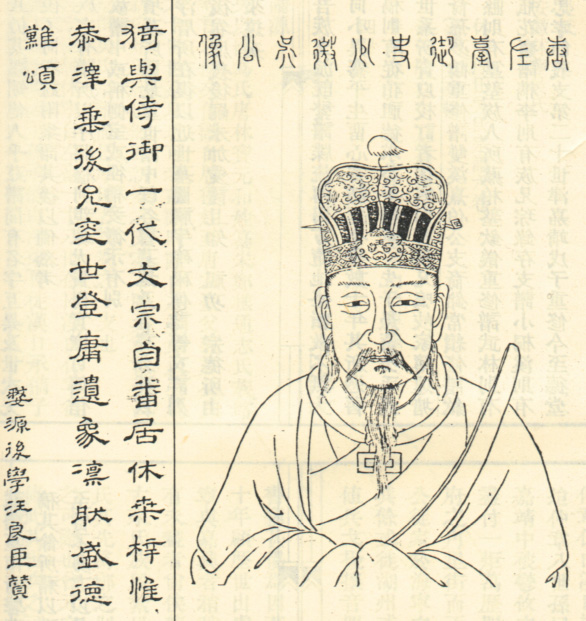 唐左臺御史少微吳公像
猗與侍御一代文宗自番居休桑梓惟
恭澤垂後昆奕世登庸遺象凛肰盛德
難頌
婺源後學汪良臣贊